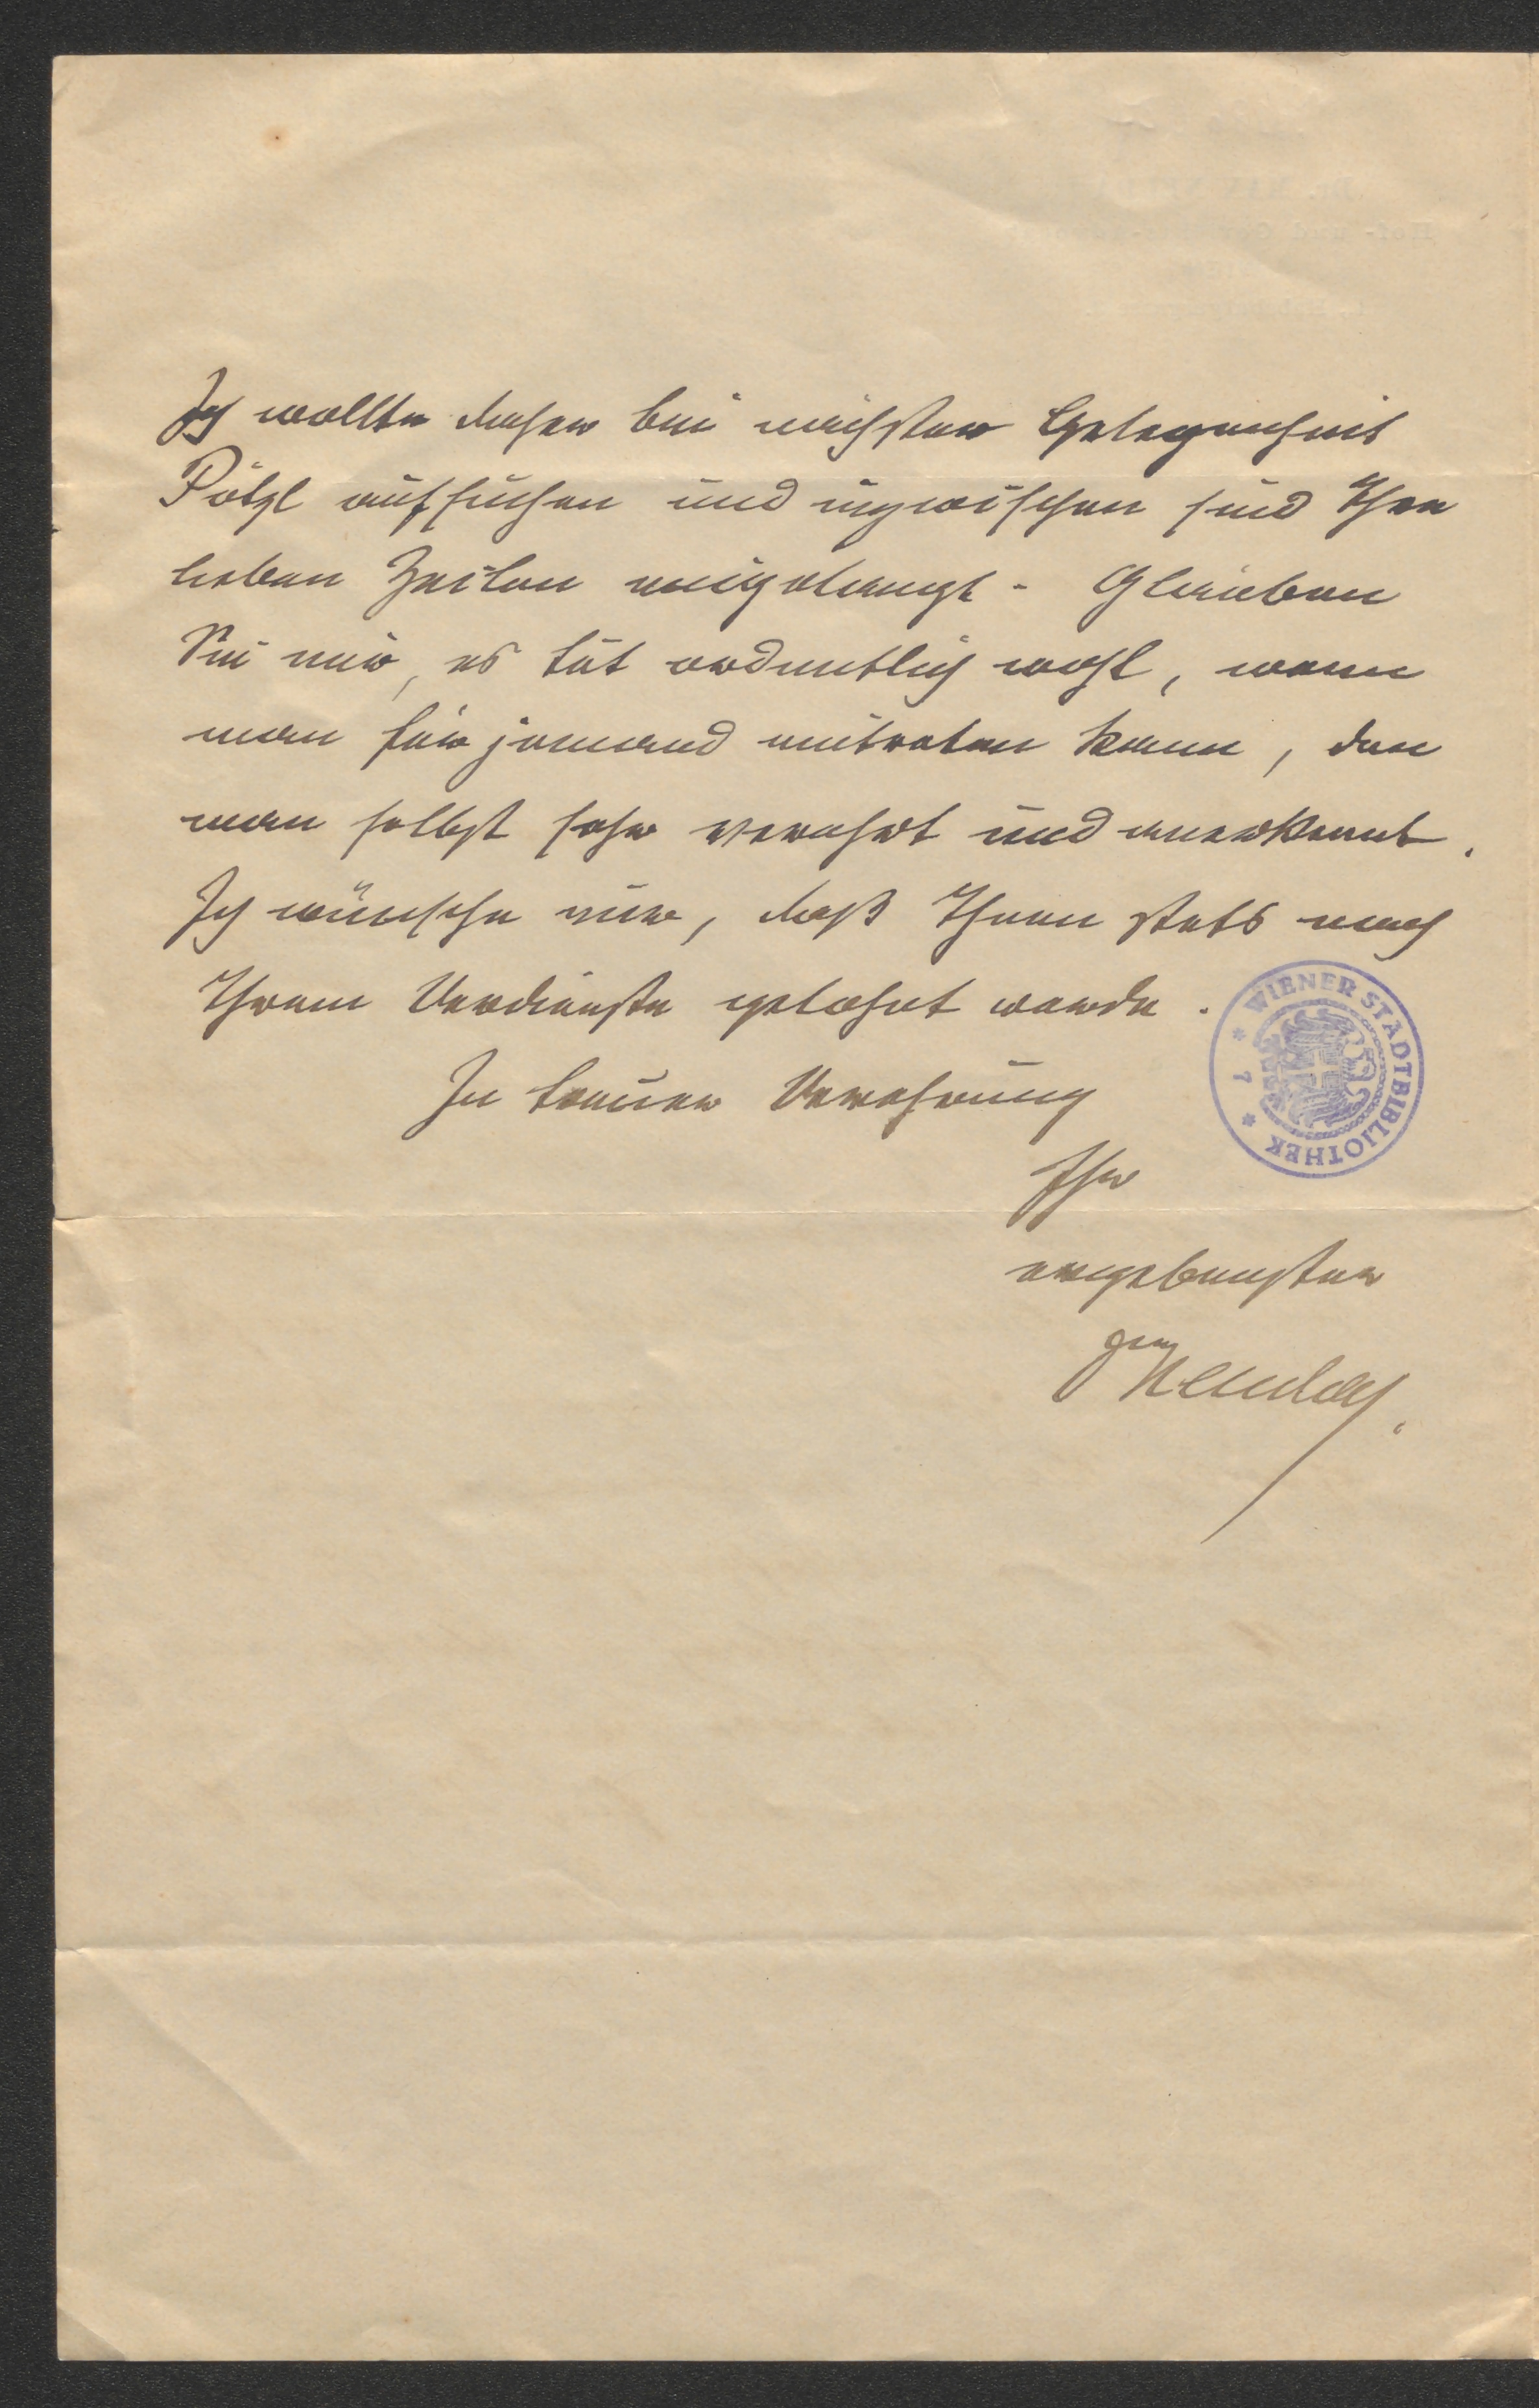 Ich wollte daher bei nächster Gelegenheit
Pötzl aufsuchen und inzwischen sind Ihre
lieben Zeilen eingelangt. Glauben
Sie mir, es tut ordentlich wohl, wenn
man für jemand eintreten kann, den
man selbst sehr verehrt und anerkennt.
Ich wünsche nur, daß Ihnen stets nach
Ihrem Verdienste gelohnt werde.
In treuer Verehrung
Ihr
ergebenster
WIENER STADTBIBLIOTHEK